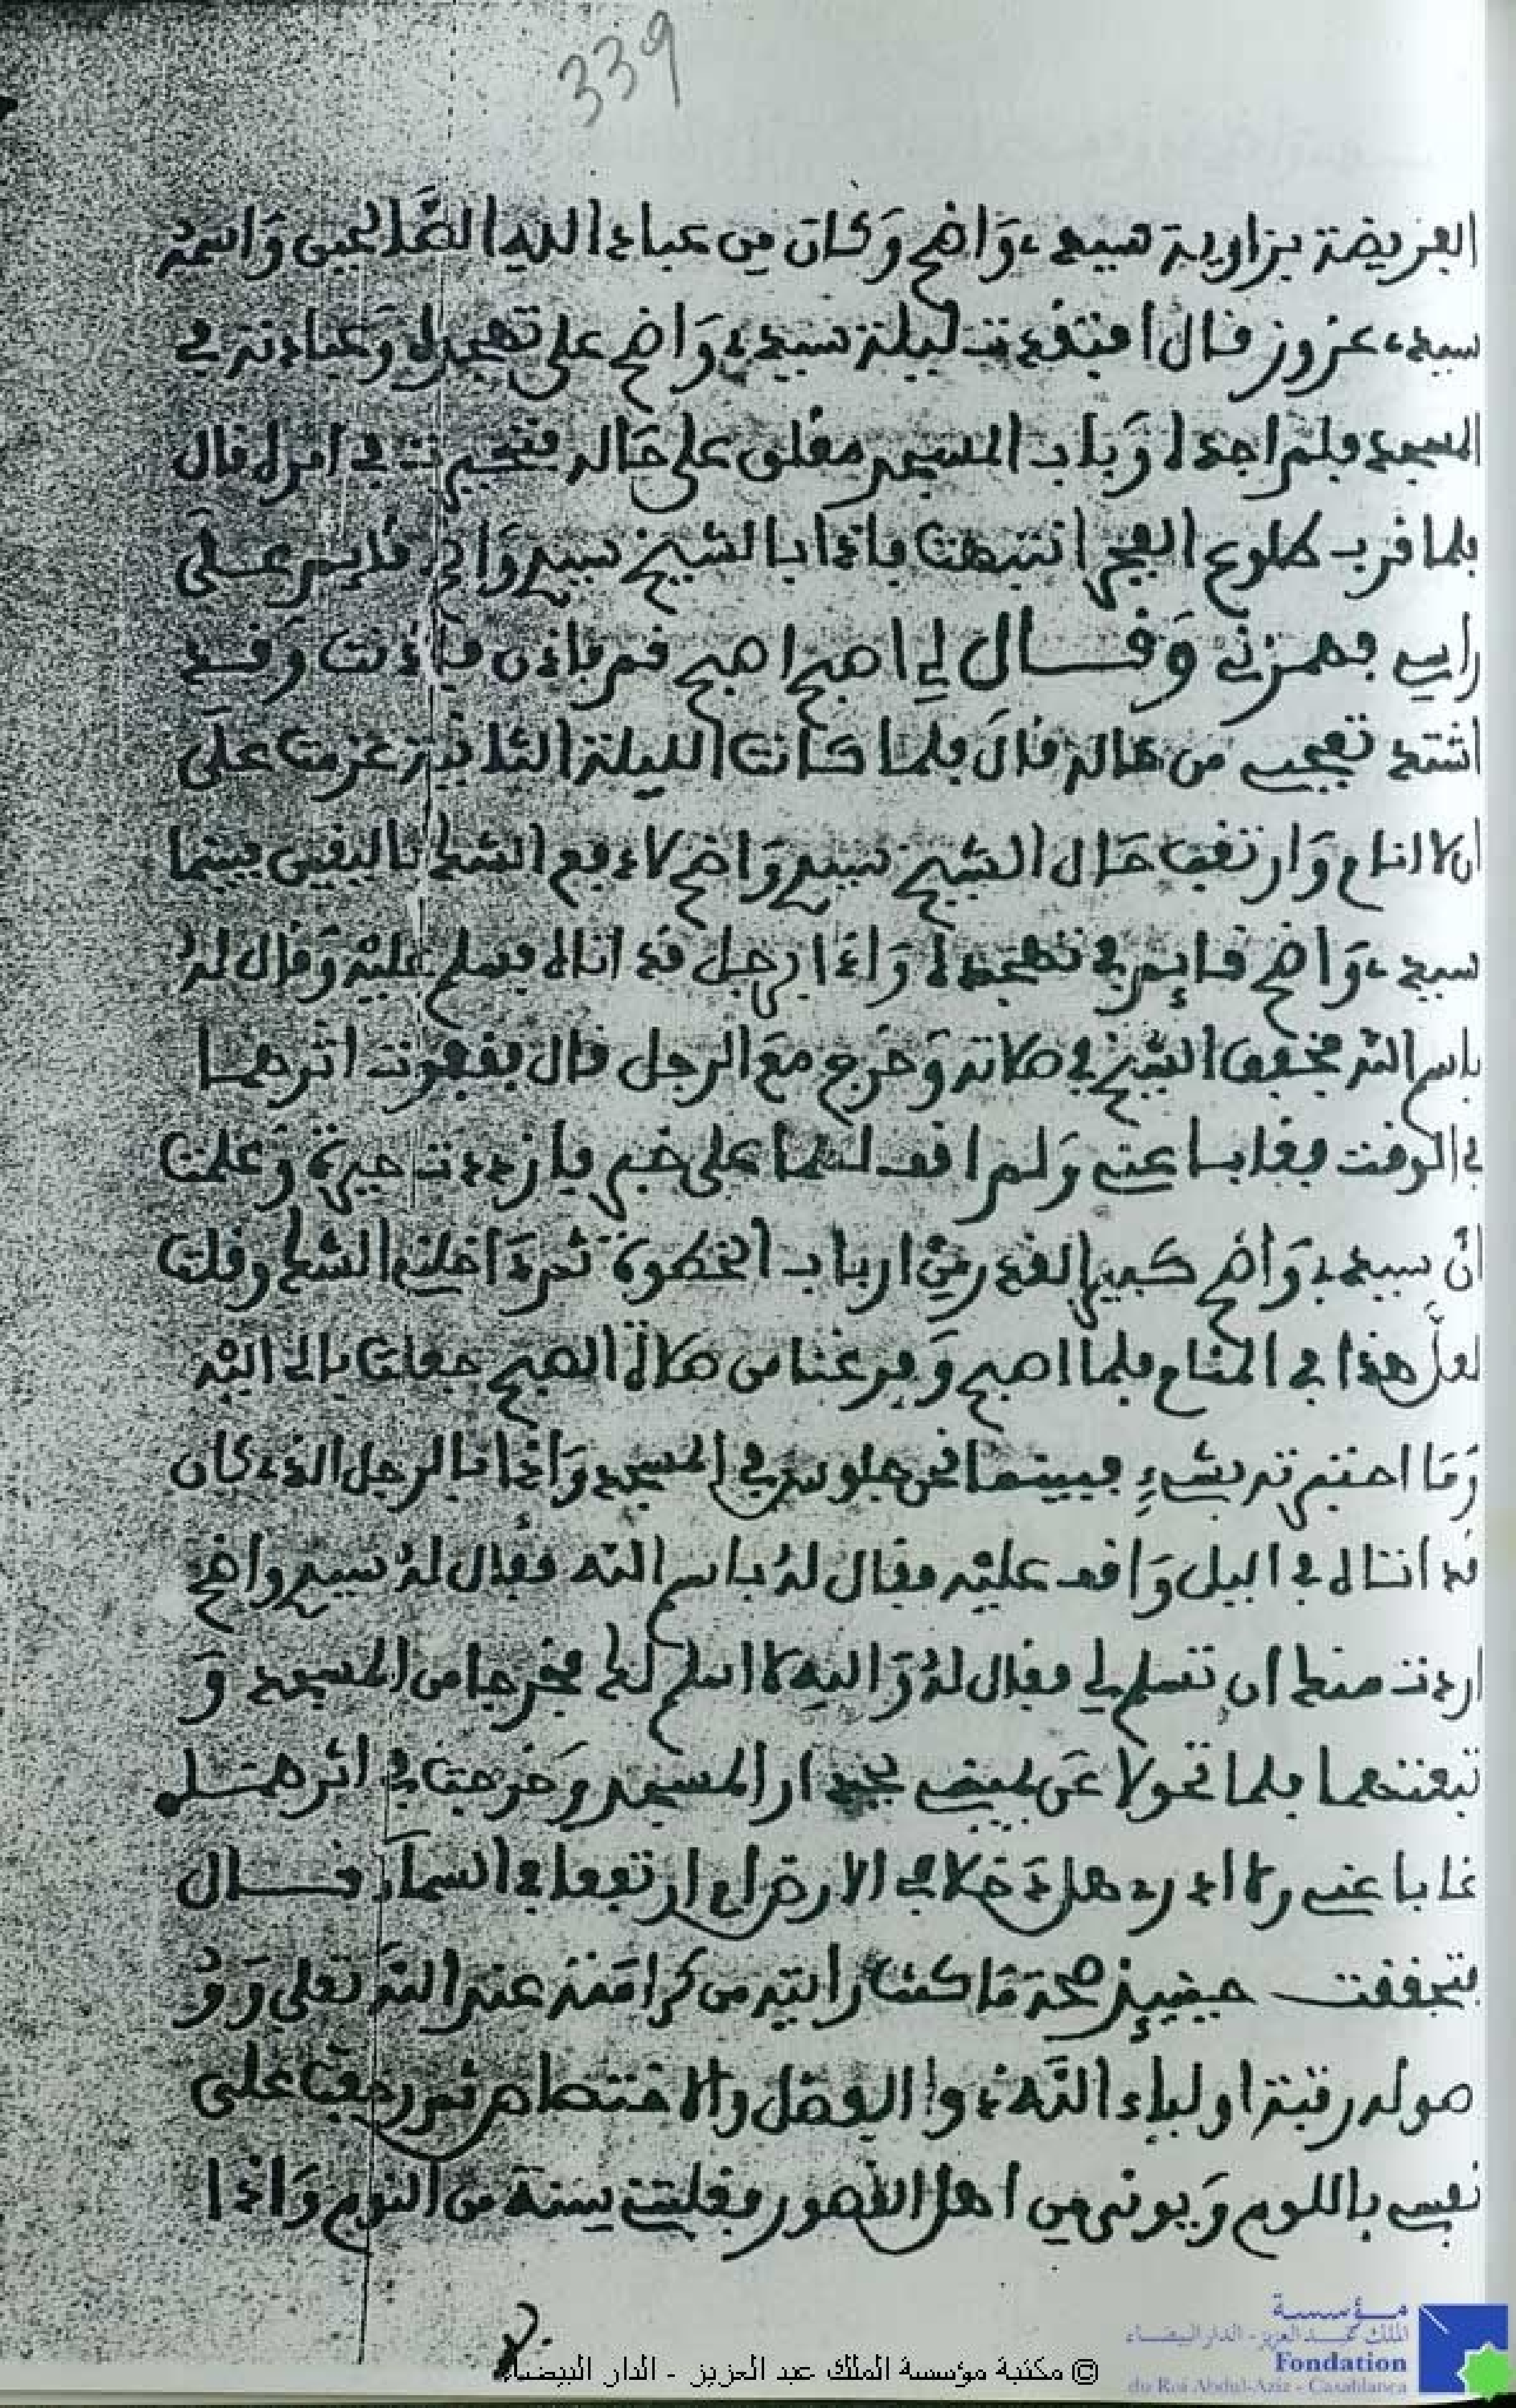 339
الفريضة بزاوية سيدي واضح وكان من عباد الله الصالحين واسمه
سيدي عزوز قال افتقدت ليلة سيدي واضح على تهجده وعبادته في
المسجد فلم اجده وباب المسجد مغلق على حاله فتحيرت في امره قال
فلما قرب طلوع الفجر انتبهت فاذا بالشيخ سيدي واضح قايم على
راسي فهمزني وقال لي اصبح اصبح قم فاذن فاذنت وقد
اشتد تعجبي من حاله قال فلما كانت الليلة الثانية عزمت على
ان لا انام وارتقب حال الشيخ سيدي واضح لادفع الشك باليقين فبينما
سيدي واضح قايم في تهجده واذا برجل قد اتاه فسلم عليه وقال له
باسم الله فخفف الشيخ في صلاته وخرج مع الرجل قال فقفوت اثرهما
في الوقت فغابا عني ولم اقف لهما على خبر فازددت حيرة وعلمت
ان سيدي واضح كبير القدر من ارباب الخطوة ثم داخلني الشك وقلت
لعل هذا في المنام فلما اصبح وفرغنا من صلاة الصبح جعلت بالي اليه
وما اخبرته بشيء فبينما نحن جلوس في المسجد واذا بالرجل الذي كان
قد اتاه في اليل واقف عليه فقال له باسم الله فقال له سيدي واضح
اردت منك ان تسلم لي فقال له والله لا اسلم لك فخرجا من المسجد و
تبعتهما فلما تحولا عن بجدار المسجد وخرجت في اثرهما
غابا عني ولا ادري هل دخلا في الارض ام ارتفعا في السماء قال
فتحققت حينيذ صحة ما كنت رايته من كرامته عند الله تعلى و و
صوله رتبة اولياء الله ذوا الفضل والاختصاص ثم رجعت على
نفسي باللوم و من اهل القصور فغلبتني سنة من النوم واذا
© مكتبة مؤسسة الملك عبد العزيز - الدار البيضاء
مؤسسة
الملك عبد العزيز - الدار البيضاء
Fondation
du Roi Abdul-Aziz - Casablanca